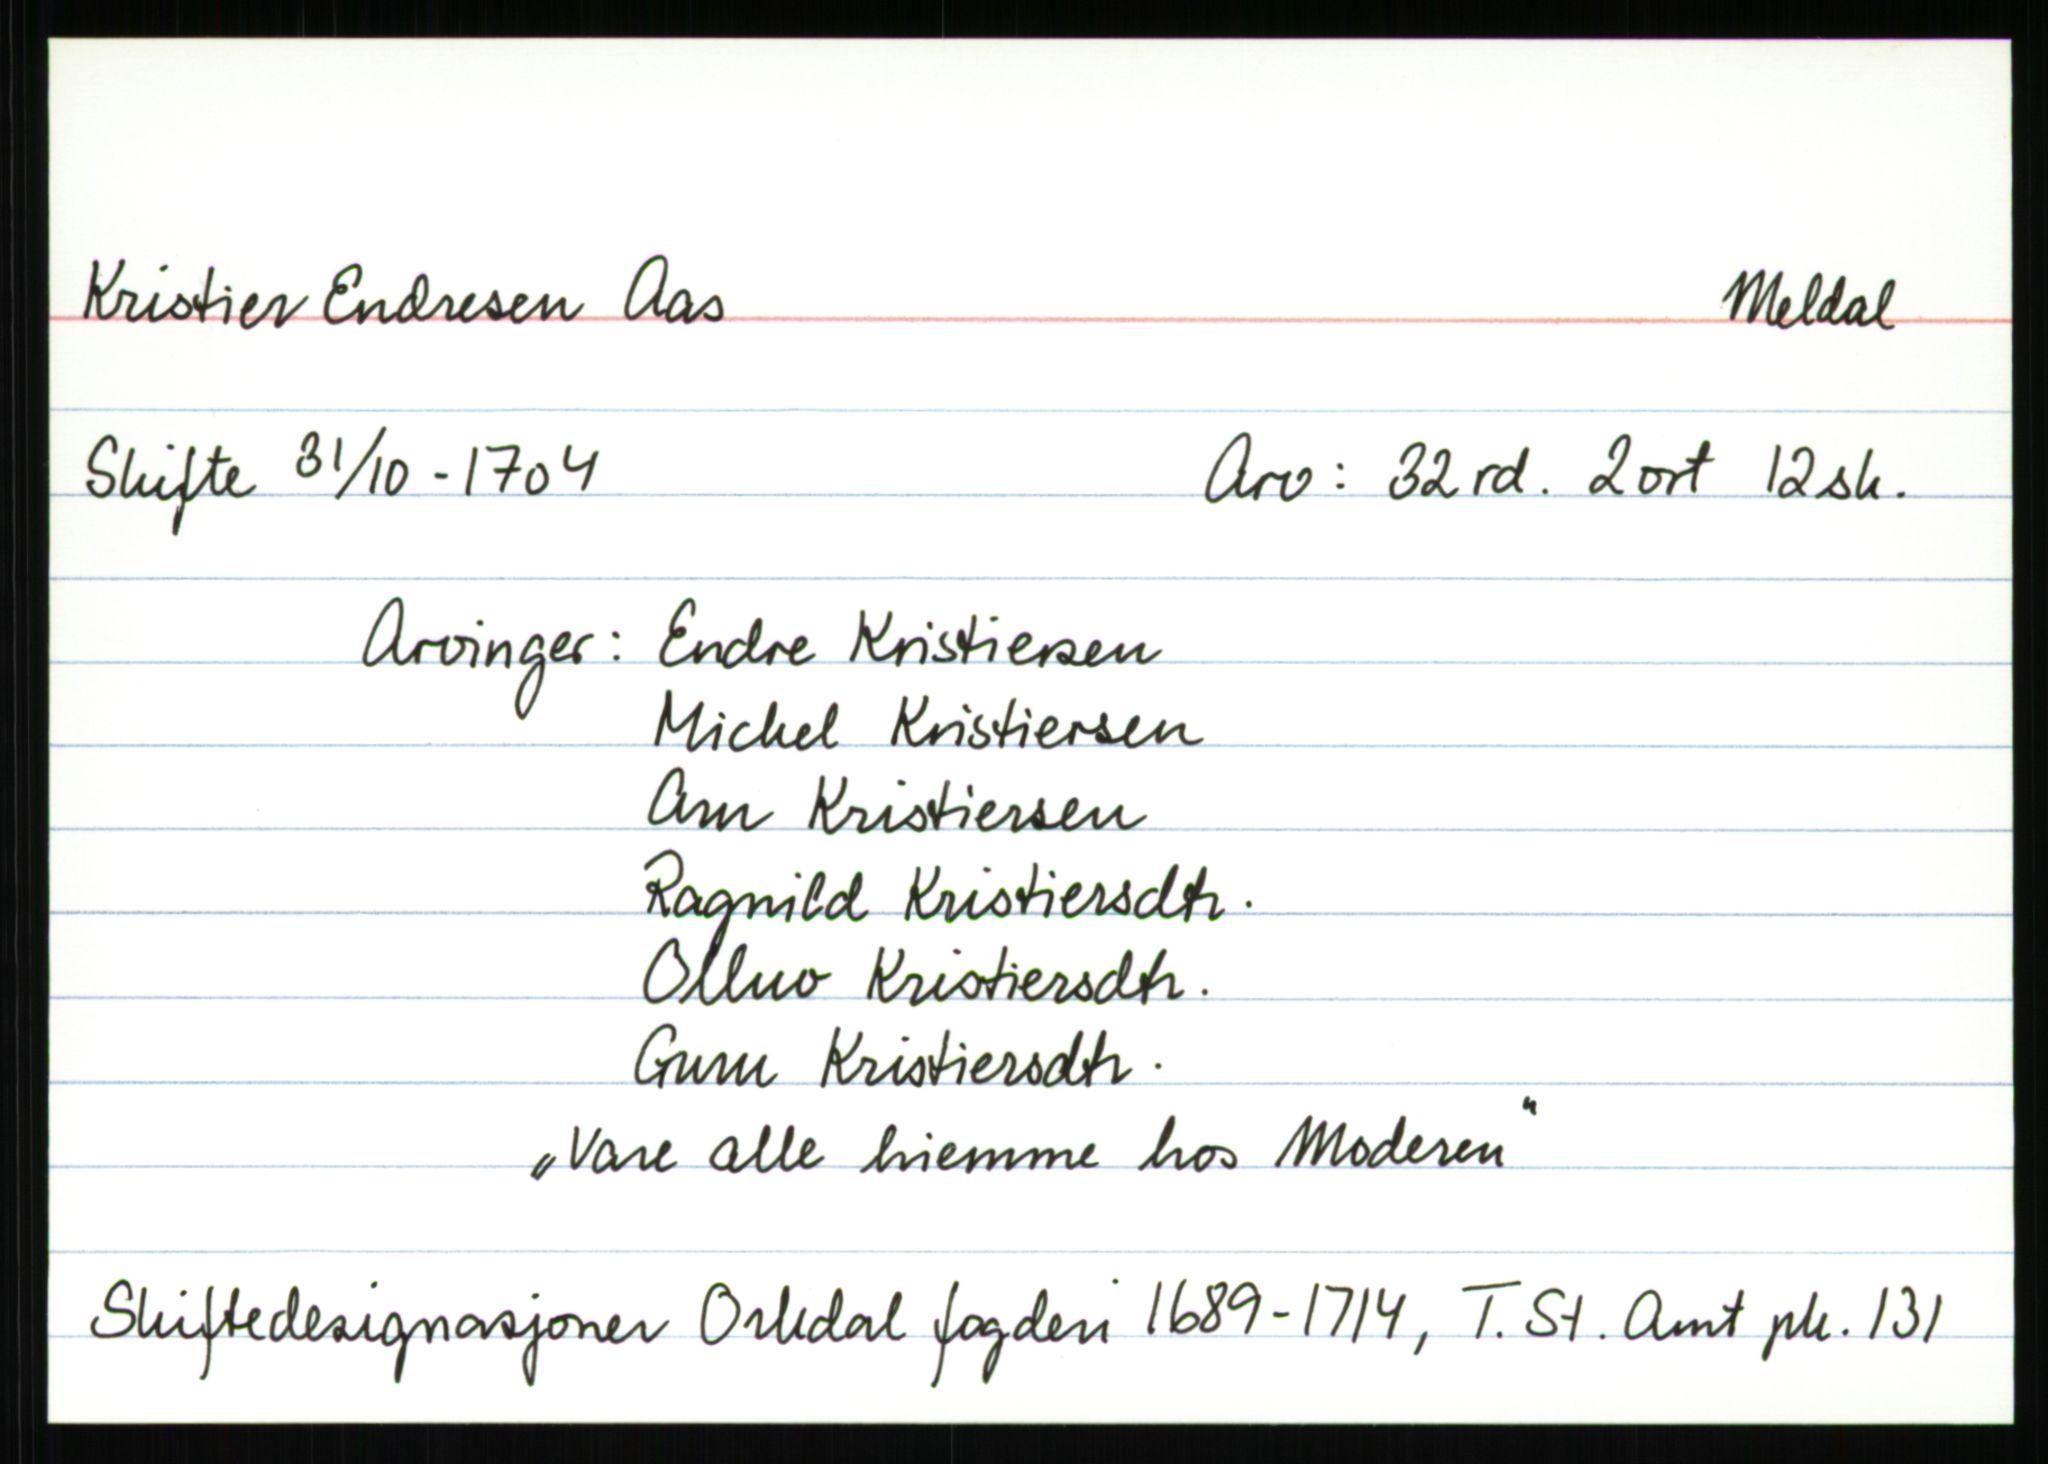 Kristier Endresen Aas Meldal
Skifte 31/10 - 1704 Arv: 32 rd. 2 ort 12 sk.
Arvinger: Endre Kristiersen
Mickel Kristiersen
Arn Kristiersen
Ragnild Kristiersdtr.
Olluv Kristiersdtr.
Guru Kristiersdtr.
„Vare alle hiemme hos Moderen"
Skiftedesignasjoner Orkdal fogderi 1689-1714, T. St. Amt pk. 131